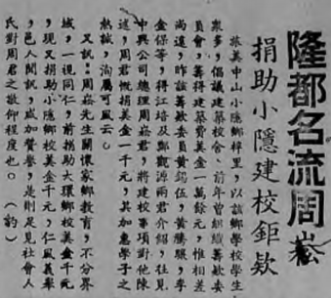 隆都名流周崧
捐助小隱建校鉅欵
旅美中山小隱鄉梓里，以該鄉學校學生
衆多，倡議建築校舍，前年曾組織籌欵委
員會，籌得建築費美金一萬餘元，惟相差
尚遠，昨該籌欵委員黃錫伍，黃騰驥，李
金保等，得江培及鄭觀源兩君介紹，往見
中興公司總理周崧君，將建校事項對他陳
述，周君慨捐美金一千元，其加惠學子之
熱誠，洵屬可風云。
又訊：周崧先生關懷家鄉教育，不分界
域，一視同仁，前捐助大環鄉校美金千元
，現又捐助小隱鄉校美金千元，仁風義舉
，邑人聞訊，咸加贊譽，是則足見社會人
氏對周君之敬仰程度也。（訪）